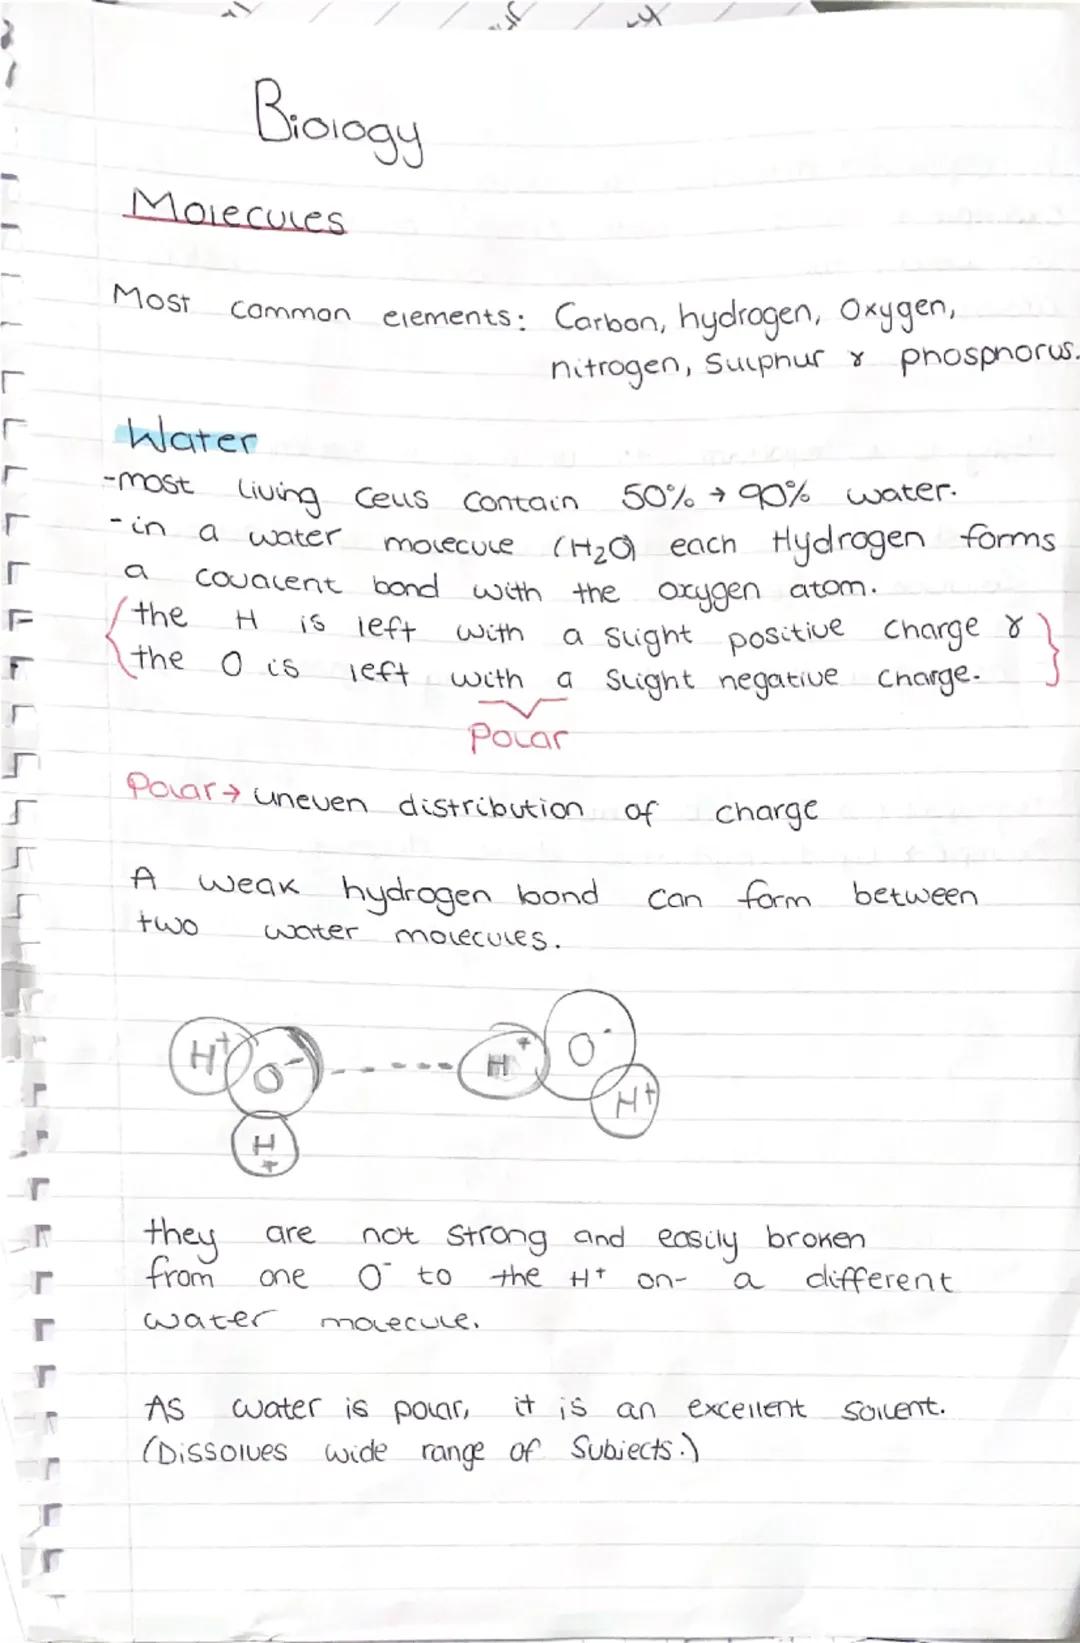 Biology
Molecules
Most common elements: Carbon, hydrogen, Oxygen,
nitrogen, Sulphur & phosphorus.
Water
-most living cells contain 50% → 90% water.
-in a water molecule (H₂O) each Hydrogen forms
a covalent bond with the oxygen atom.
the H is left with a slight positive charge &
the O is left with a slight negative charge.
Polar
Polar → uneven distribution of charge
A weak hydrogen bond can form between
two water molecules.
H⁺ O⁻ H⁺ O⁻
H⁺ H⁺
they are not strong and easily broken
from one O⁻ to the H⁺ on- a different
water molecule.
As water is polar, it is an excellent solvent.
(Dissolves wide range of Subjects.)